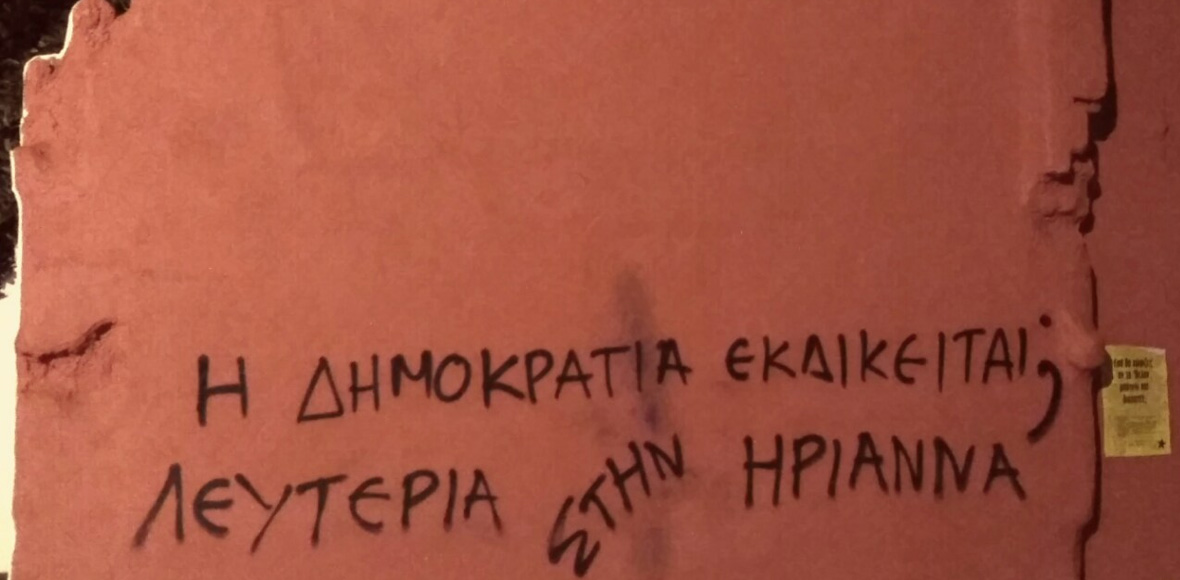 Η ΔΗΜΟΚΡΑΤΙΑ ΕΚΔΙΚΕΙΤΑΙ;
ΛΕΥΤΕΡΙΑ ΣΤΗΝ ΗΡΙΑΝΝΑ